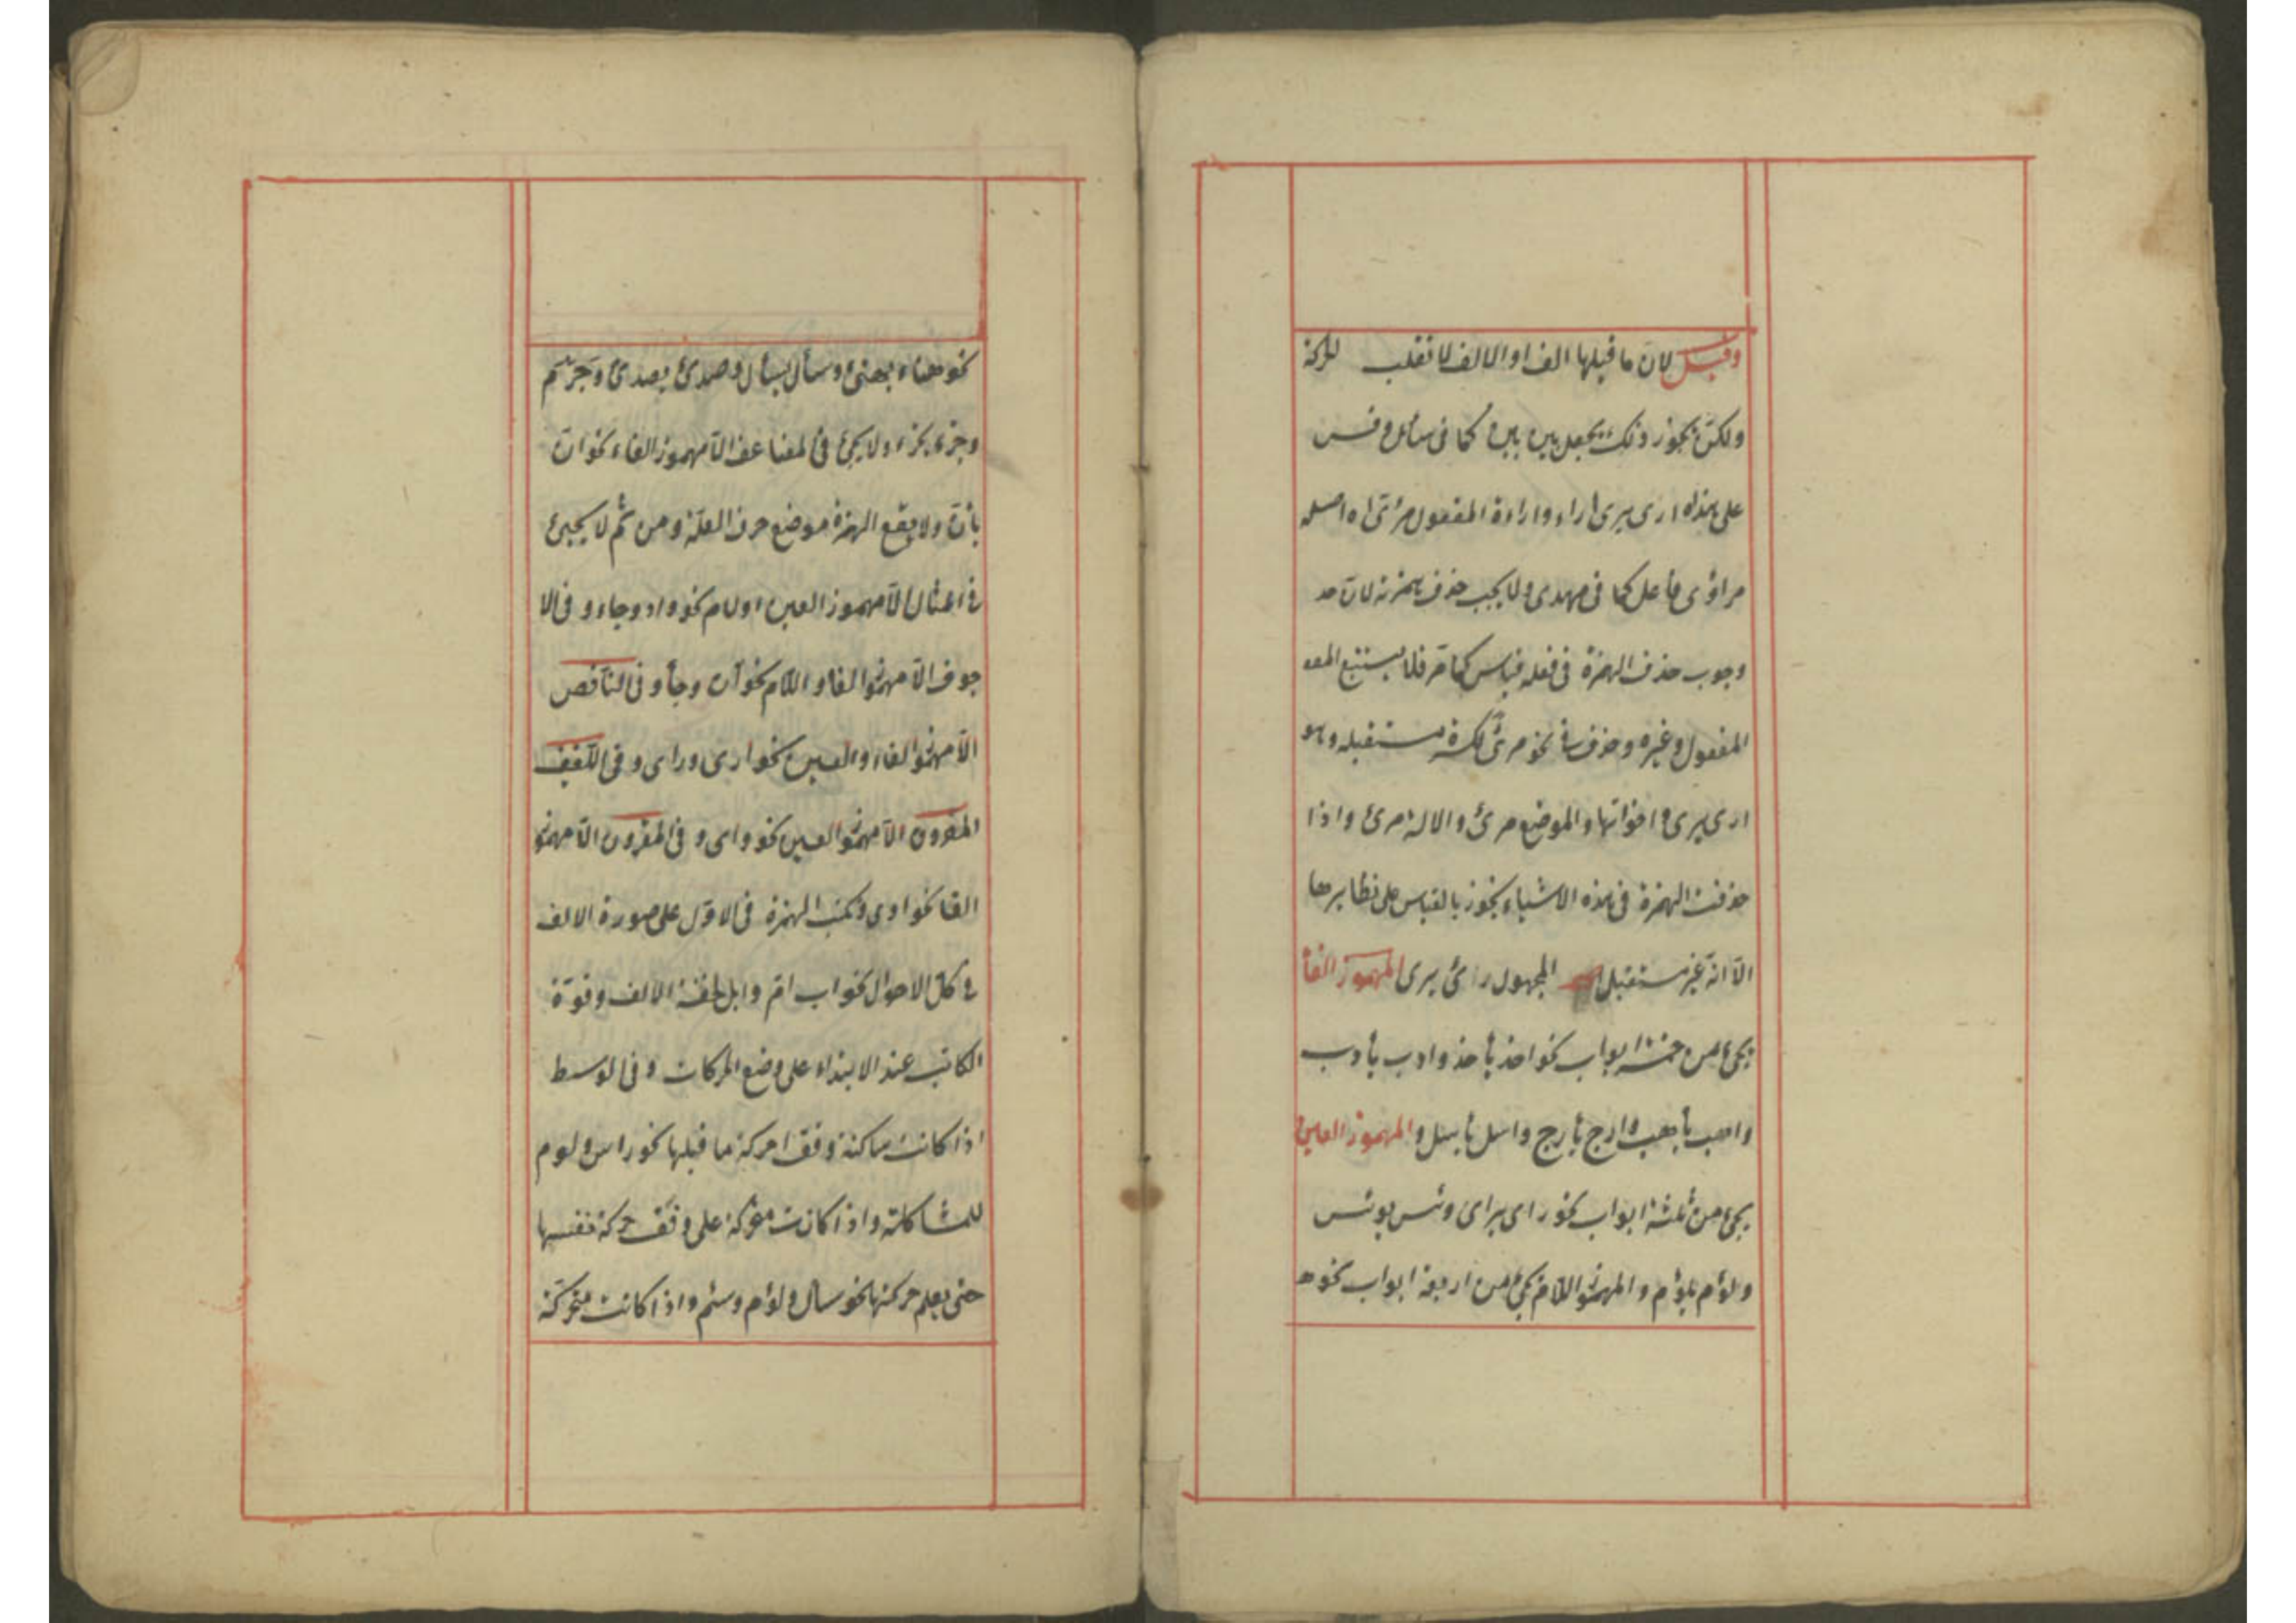 وقيل لان ما قبلها الف او الالف لا تقلب للحركة
ولكن يجوز ذلك يجعل بين بين كما فى سائل وقس
على هذا ارى يرى اراء واراءة المفعول مرئى اه اصله
مراؤى فاعل كما فى مهدى ولا يجب حذف همزته لان
وجوب حذف الهمزة فى فعله قياس كما مر فلا يستتبع المفعو
المفعول وغيره وحذف فى نحو مرى لكثرة مستقبله وهو
ارى يرى واخواتها والموضع مرئ والالة مرئ واذا
حذفت الهمزة فى هذه الاشياء يجوز بالقياس على نظايرها
الا انه غير مستقبل المجهول رائ يرى المهموز الفأ
يجئ من خمسة ابواب نحو اخذ يأخذ وادب يأدب
واهب يأهب وارج يأرج واسل يأسل والمهموز العين
يجئ من ثلثة ابواب نحو راى يراى ويئس يوئس
ولؤم يلؤم والمهموز اللام يجئ من اربعة ابواب نحو ه
نحو هناء يهنئ وسأل يسأل وصدئ يصدئ
وجزء يجزء ولا يجئ فى المضاعف الا مهموز الفاء نحو ان
يأن ولا يقع الهمزة موضع حرف العلة ومن ثم لا يجيئ
فى المثال الا مهموز العين او لام نحو واد وجاء وفى الا
جوف الا مهموز الفا واللام نحو آن وجأ وفى الناقص
الا مهموز الفاء والعين نحو ارى وراى وفى اللفيف
المفروق الا مهموز العين نحو واى وفى المقرون الا مهموز
الفا نحو اوى وتكتب الهمزة فى الاول على صورة الالف
فى كل الاحوال نحو اب ام وابل لخفة الالف وقوة
الكاتب عند الابتداء على وضع الحركات وفى الوسط
اذا كانت ساكنة وفق حركة ما قبلها نحو راس ولوم
للمشاكلة واذا كانت متحركة على وفق حركة نفسها
حتى يعلم حركتها نحو سأل ولؤم وسئم واذا كانت متحركة